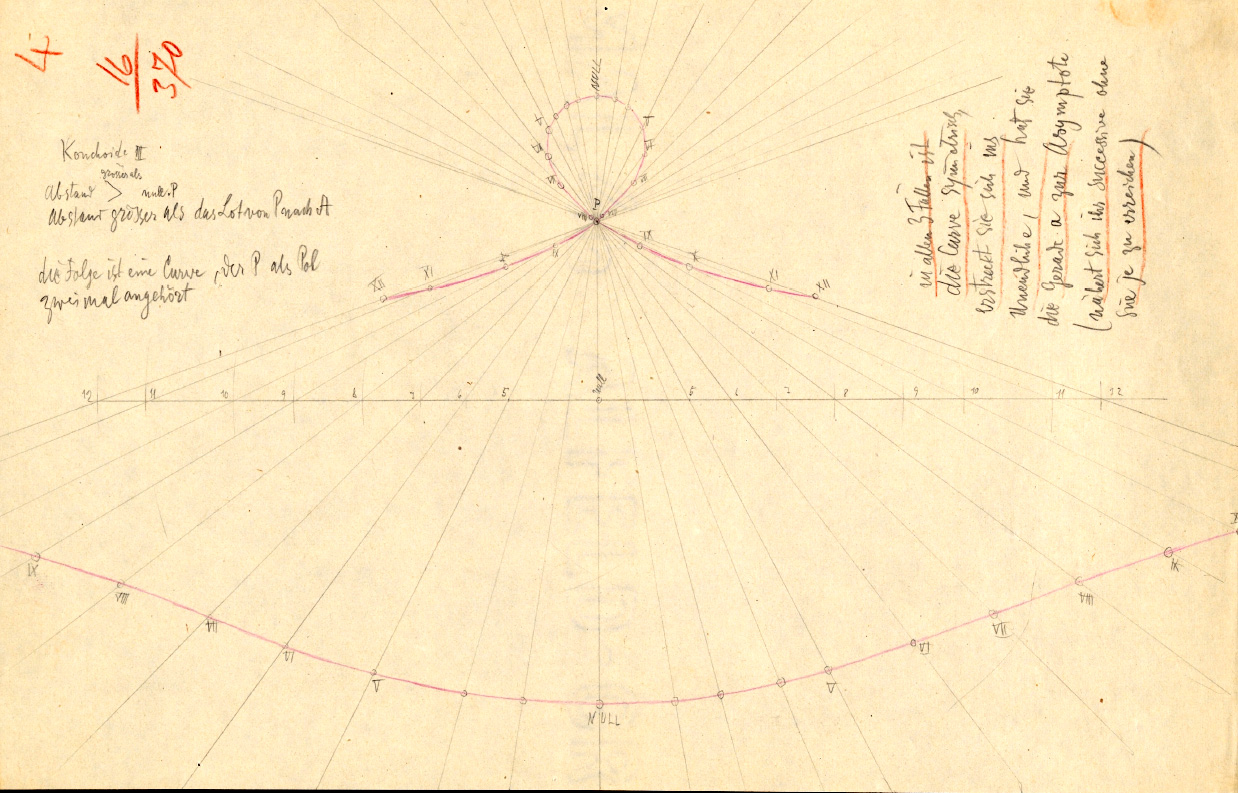 4
16
370
Konchoide III
grösser als
Abstand > null.P
Abstand grösser als das Lot von P nach A
die Folge ist eine Curve, der P als Pol
zweimal angehört
in allen 3 Fällen ist
die Curve symetrisch,
erstreckt sie sich ins
Unendliche, und hat sie
die Gerade a zur Asymptote
(nähert sich ihr successive ohne
sie je zu erreichen)
NULL
V
VI
P
XI
X
XI
XII
IX
XI
XII
12 11 10 9 8 7 6 5 null 5 6 7 8 9 10 11 12
IX
VIII
VII
VI
V
NULL
V
VI
VII
VIII
IX